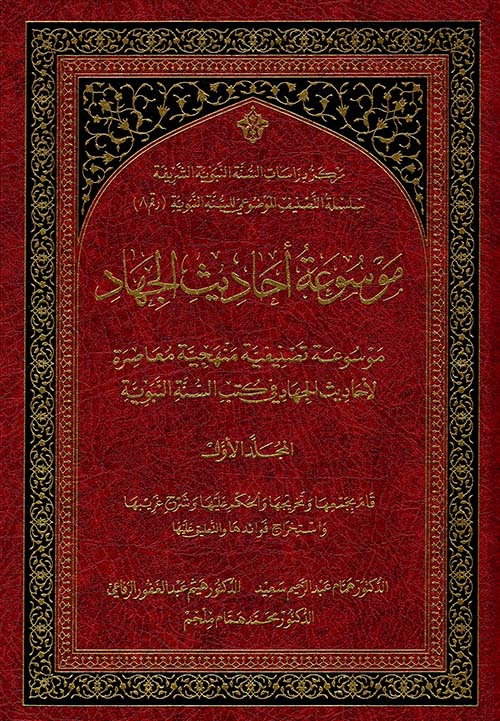 مركز دراسات السنة النبوية الشريفة
سلسلة التصنيف الموضوعي للسنة النبوية (رقم ٨)
مَوْسُوعَةُ أَحَادِيثِ الجِهَادِ
مَوْسُوعَة تَصْنِيفِيَّة مَنْهَجِيَّة مُعَاصِرَة
لأحَاديث الجهَاد في كتب السُّنَّةِ النَّبَوِيَّة
المجَلّد الأوّل
قَامَ بجَمْعِهَا وَتخْريجهَا وَالحكم عَلَيْهَا وَشَرْح غَريبهَا
وَاسْتِخرَاج فَوَائدهَا وَالتَّعليق عَليْهَا
الدّكتور همَّام عَبد الرَّحيم سَعيد الدّكتور هَيثم عَبد الغَفور الرّفاعيّ
الدّكتور محَمّد هَمّام مُلحم